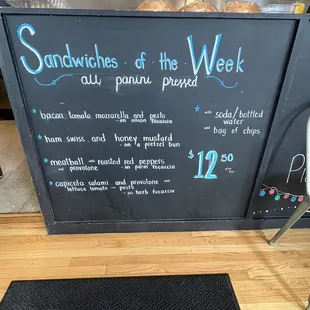 Sandwiches of the Week
all panini pressed
* bacon, tomato, mozzarella and pesto
- on onion focaccia
* ham, swiss, and honey mustard
- on a pretzel bun
* meatball with roasted red peppers
and provolone - on parm focaccia
* capicola salami and provolone with
lettuce tomato and pesto
- on herb focaccia
* with soda/bottled
water
and bag of chips
$12.50